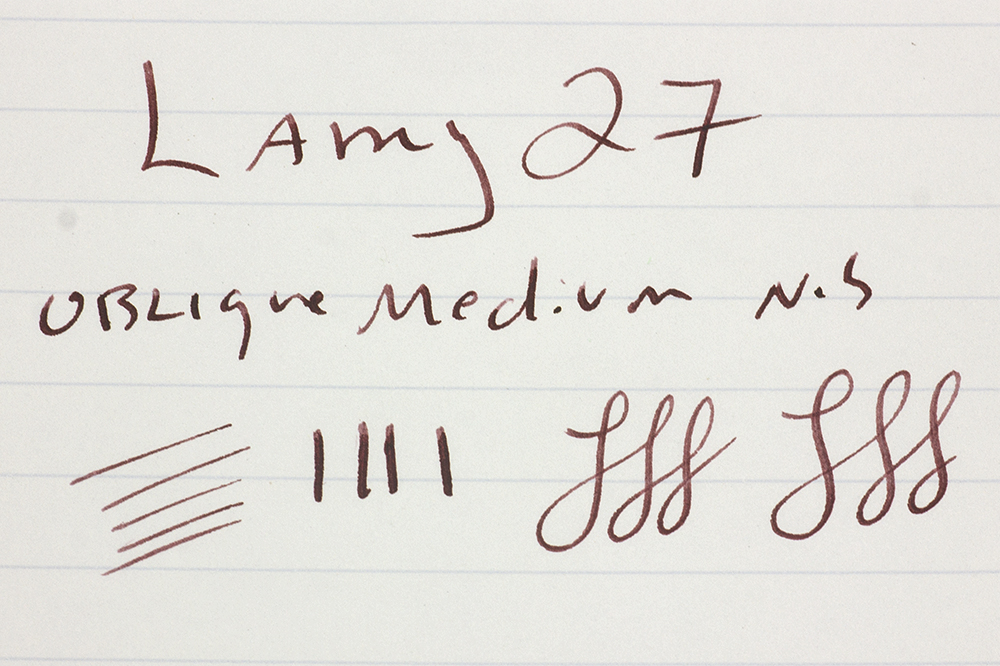 LAmy 27
OBLIque Medium Nib